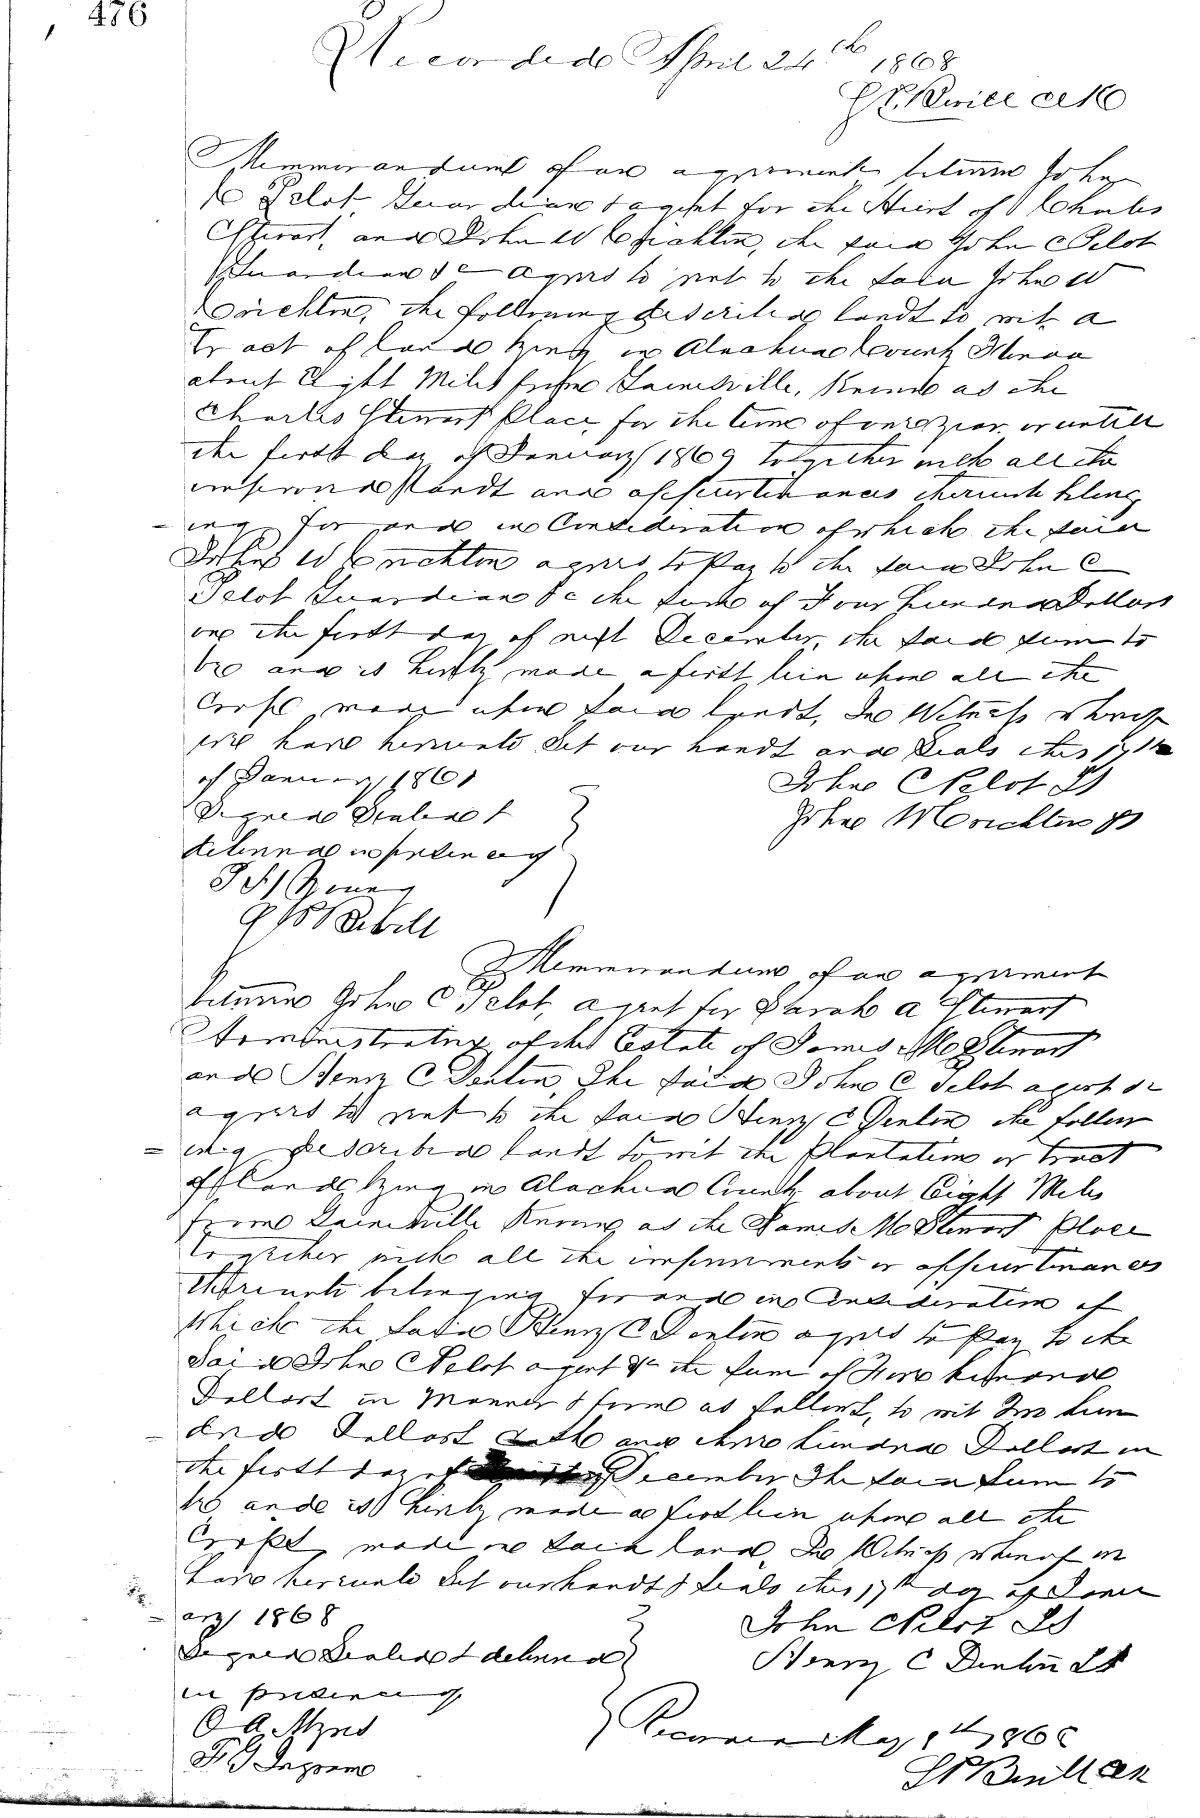 476
Recorded April 24th 1868
Clk
Memmorandum of an agreement between John
C Pelot Guardian & agent for the Heirs of Charles
Stewart, and John W Crichton, the said John C Pelot
Guardian &c agrees to rent to the said John W
Crichton, the following described lands to wit a
Tract of land lying in Alachua County Florida
about Eight Miles from Gainesville, Known as the
Charles Stewart Place, for the time of one year or untill
the first day of January 1869 together with all the
improved lands and appurtinances thereunto belong
= ing for and in Consideration of which the said
John W Crichton agrees to Pay to the said John C
Pelot Guardian &c the sum of Four Hundred Dollars
on the first day of next December, the said sum to
be and is hereby made a first lein upon all the
Crops made upon said lands, In Witness whereof
we have hereunto Set our hands and Seals this 17th
of January 1868
John C Pelot LS
Signed Sealed &
John W Crichton LS
delivered in presence of
Young
Memmorandum of an agreement
between John C Pelot, agent for Sarah A Stewart
Administratrix of the Estate of James M Stewart
and Henry C Denton, The said John C Pelot agent &c
agrees to rent to the said Henry C Denton the follow
= ing described lands to wit the Plantation or tract
of land lying in Alachua County about Eight Miles
from Gainesville Known as the James M Stewart place
together with all the improvements or appurtinances
thereunto belonging for and in Consideration of
which the said Henry C Denton agrees to Pay to the
Said John C Pelot agent &c the sum of Five hundred
Dollars in Manner & form as follows, to wit Two hun
= dred Dollars Cash and three hundred Dollars on
the first day of December The said Sum to
be and is hereby made a first lein upon all the
Crops made on said land, In Witness whereof we
have hereunto Set our hands & Seals this 17th day of Janu
= ary 1868
John C Pelot LS
Signed Sealed & delivered
Henry C Denton LS
in presence of
O A Myers
F G Ingram
Recorded May 9th 1868
Clk